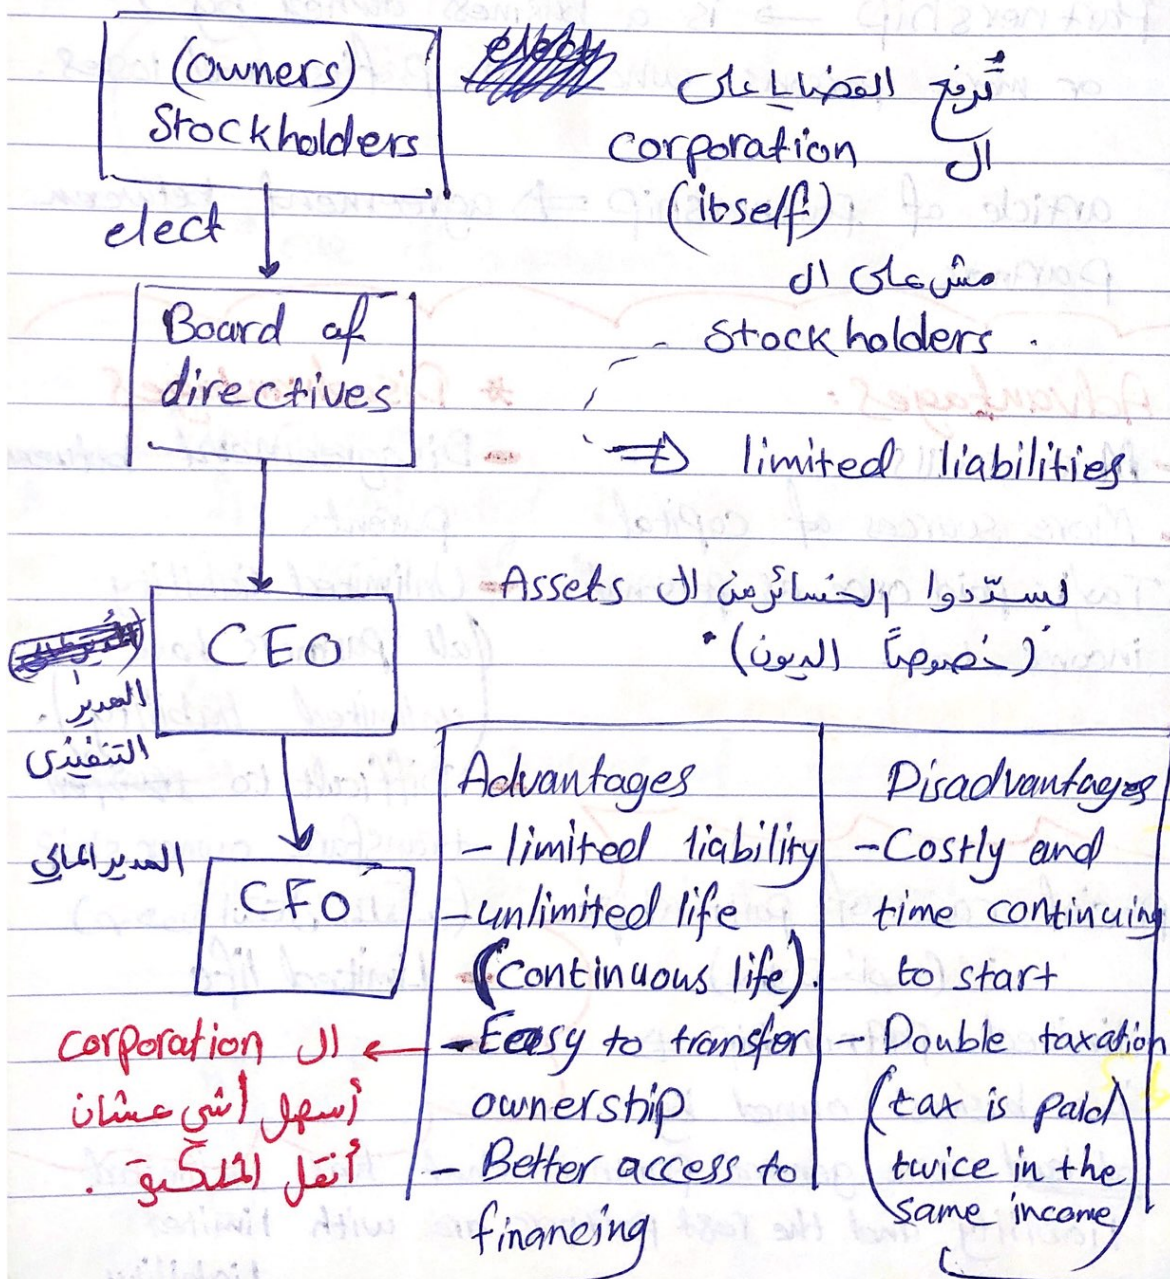 (owners)
Stockholders
elect
Board of
directives
CEO
المدير
التنفيذي
المدير المالي
CFO
تُرفع القضايا على
ال corporation
(itself)
مش على ال
Stockholders.
⇒ limited liabilities.
ليسدّدوا الخسائر من ال Assets
(خصوصاً الديون).
Advantages
- limited liability
- unlimited life
(continuous life).
- Easy to transfer
ownership
- Better access to
financing
Disadvantages
- Costly and
time continuing
to start
- Double taxation
(tax is paid
twice in the
same income)
ال corporation
أسهل أشي عشان
أنقل الملكية.